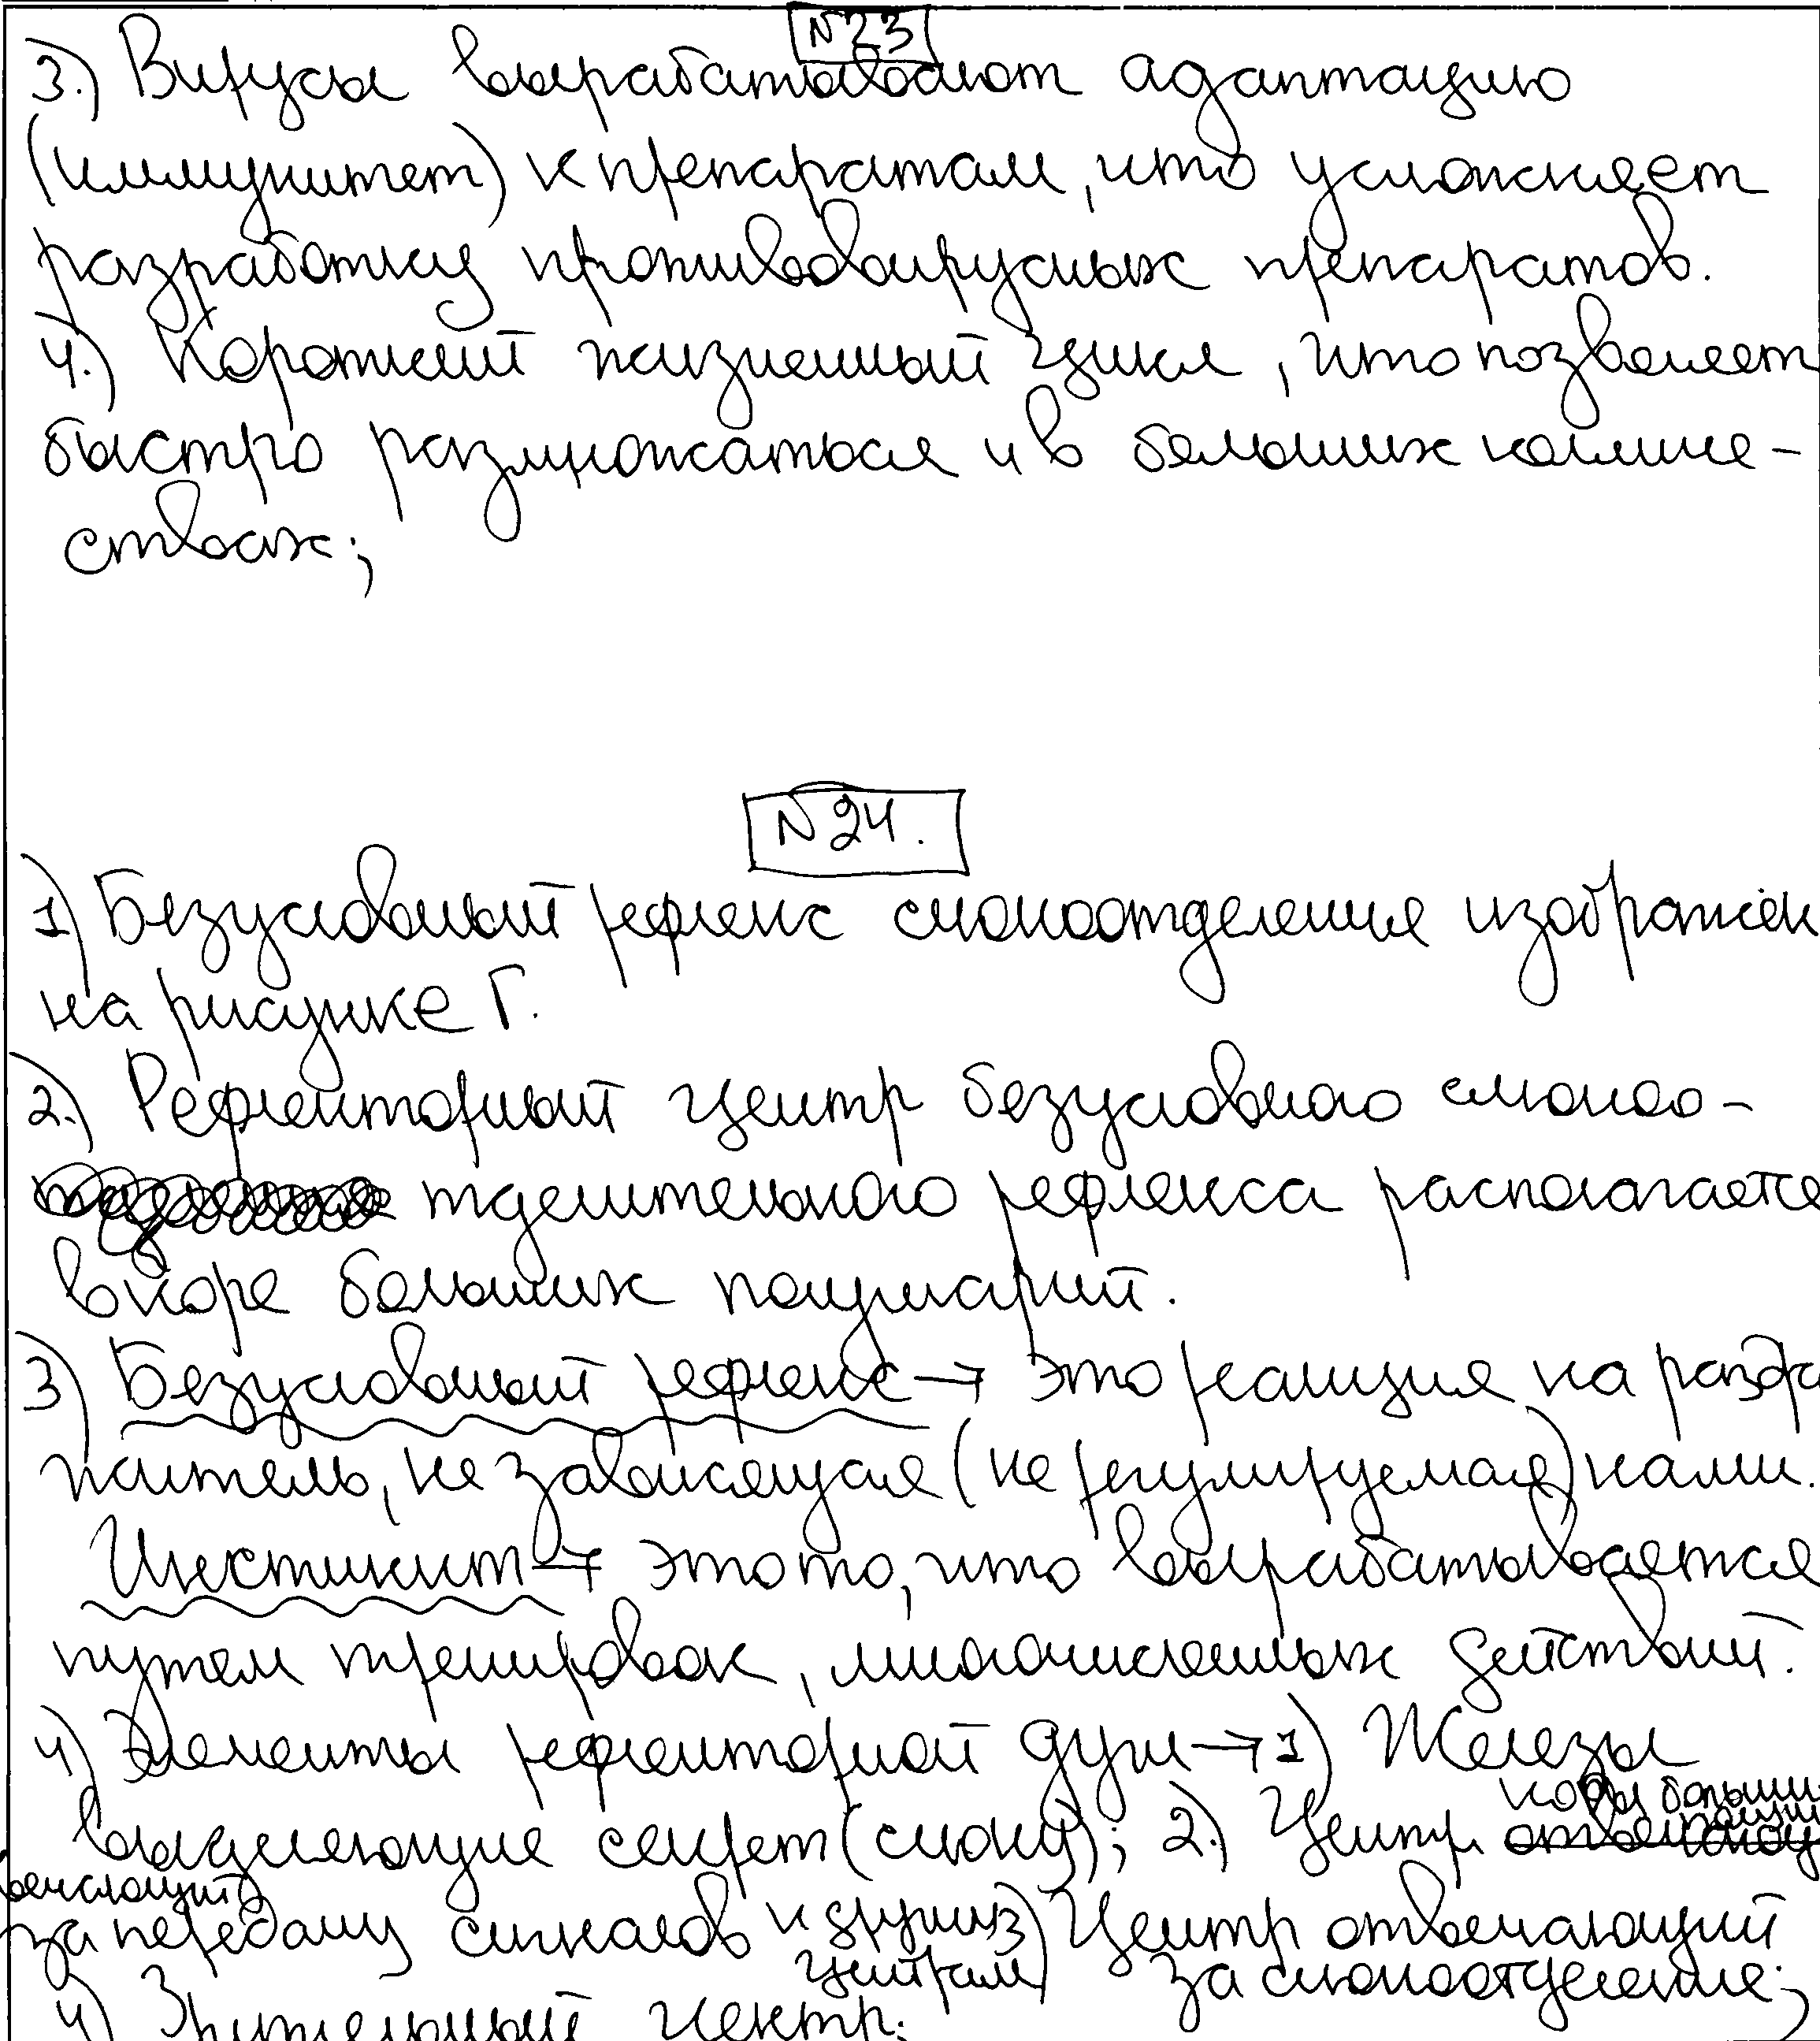 N23
3.) Вирусы вырабатывают адаптацию
(иммунитет) к препаратам, что усложняет
разработку противовирусных препаратов.
4.) Короткий жизненный цикл, что позволяет
быстро размножаться и в больших количе-
ствах;
N24.
1) Безусловный рефлекс слюноотделения изображён
на рисунке Г.
2.) Рефлекторный центр безусловного слюноо-
тделительного рефлекса располагается
в коре больших полушарий.
3) Безусловный рефлекс → это реакция на раздра
житель, не зависящая (не регулируемая) нами.
Инстинкт → это то, что вырабатывается
путем тренировок, многочисленных действий.
4) Элементы рефлекторной дуги → 1) Железы
выделяющие секрет (слюну); 2.) Центр коры больших полуш
отвечающий за передачу сигналов к другим центрам 3) Центр отвечающий
за слюноотделение;
4) Зрительный центр;